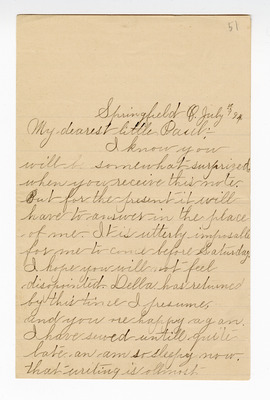 51
Springfield O. July 3rd 94
My dearest little Paul:-
I know you
will be somewhat surprized
when you receive this note.
But for the present it will
have to answer in the place
of me. It is utterly impossible
for me to come before Saturday
I hope you will not feel
disopointed. Della has returned
by this time I presume,
and you are happy again.
I have sewed untill quite
late an am so sleepy now.
that writing is allmost